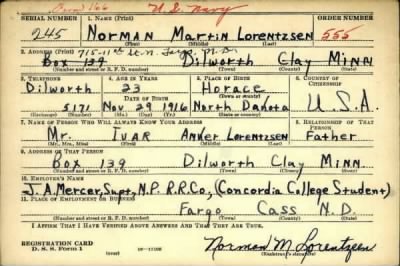 Form 166 U.S. Navy
SERIAL NUMBER 1. NAME (Print) ORDER NUMBER
245 NORMAN MARTIN LORENTZSEN 555
(First) (Middle) (Last)
2. ADDRESS (Print) 715-11th St. N. Fargo, N.D.
Box 139 Dilworth Clay MINN
(Number and street or R. F. D. number) (Town) (County) (State)
3. TELEPHONE 4. AGE IN YEARS 5. PLACE OF BIRTH 6. COUNTRY OF CITIZENSHIP
Dilworth 23 Horace
DATE OF BIRTH (Town or county)
5171 Nov 29 1916 North Dakota U.S.A.
(Exchange) (Number) (Mo.) (Day) (Yr.) (State or country)
7. NAME OF PERSON WHO WILL ALWAYS KNOW YOUR ADDRESS 8. RELATIONSHIP OF THAT PERSON
Mr. IVAR Anker Lorentzsen Father
(Mr., Mrs., Miss) (First) (Middle) (Last)
9. ADDRESS OF THAT PERSON
Box 139 Dilworth Clay MINN.
(Number and street or R. F. D. number) (Town) (County) (State)
10. EMPLOYER'S NAME
J.A. Mercer, Supt, N.P. R.R. Co, (Concordia College Student)
11. PLACE OF EMPLOYMENT OR BUSINESS
Fargo Cass N.D.
(Number and street or R. F. D. number) (Town) (County) (State)
I AFFIRM THAT I HAVE VERIFIED ABOVE ANSWERS AND THAT THEY ARE TRUE.
REGISTRATION CARD
D. S. S. Form 1 Norman M Lorentzsen
(Registrant's signature)